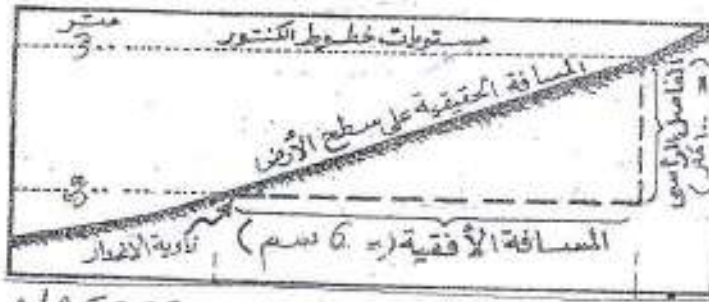 متر
مستويات خطوط الكنتور
3..
المسافة الحقيقية على سطح الأرض
الفاصل الرأسى
( = ١٠٠ متر )
زاوية الانحدار
المسافة الأفقية ( = 6 سم )